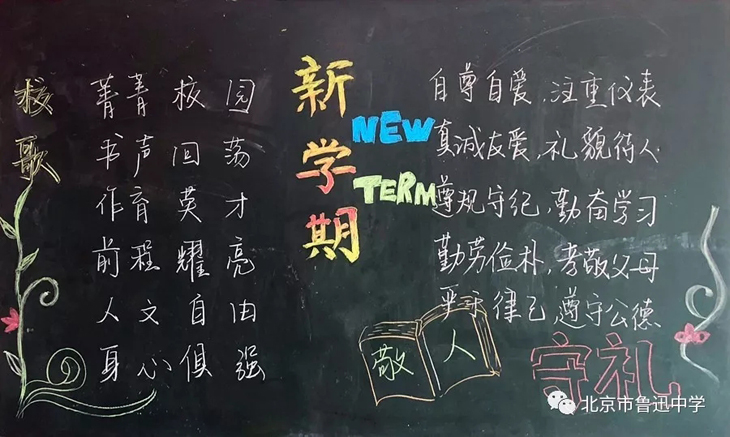 校歌
菁菁校园
书声回荡
作育英才
前程耀亮
人文自由
身心俱强
新学期
NEW
TERM
自尊自爱,注重仪表
真诚友爱,礼貌待人
遵规守纪,勤奋学习
勤劳俭朴,孝敬父母
严于律己,遵守公德
敬人
守礼
北京市鲁迅中学